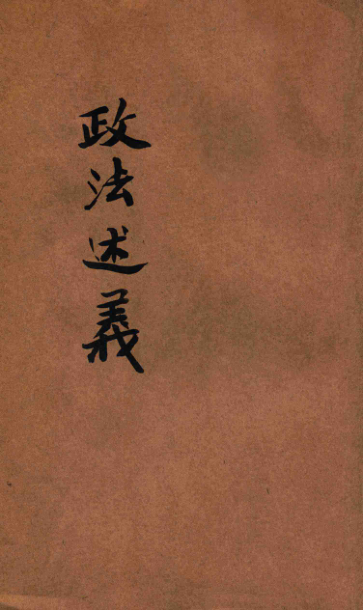 政法述義